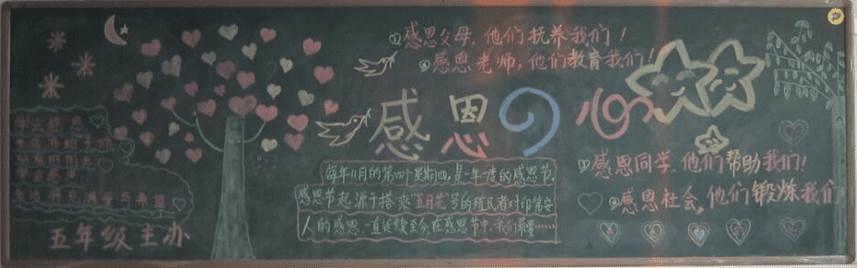 感恩父母，他们抚养我们！
感恩老师，他们教育我们！
感恩の心
学会感恩
五年级主办
每年11月的第四个星期四，是一年一度的感恩节。
感恩节起源于搭乘“五月花”号的殖民者对印第安
人的感恩，一直延续至今，在感恩节中，我们需要……
感恩同学，他们帮助我们！
感恩社会，他们锻炼我们